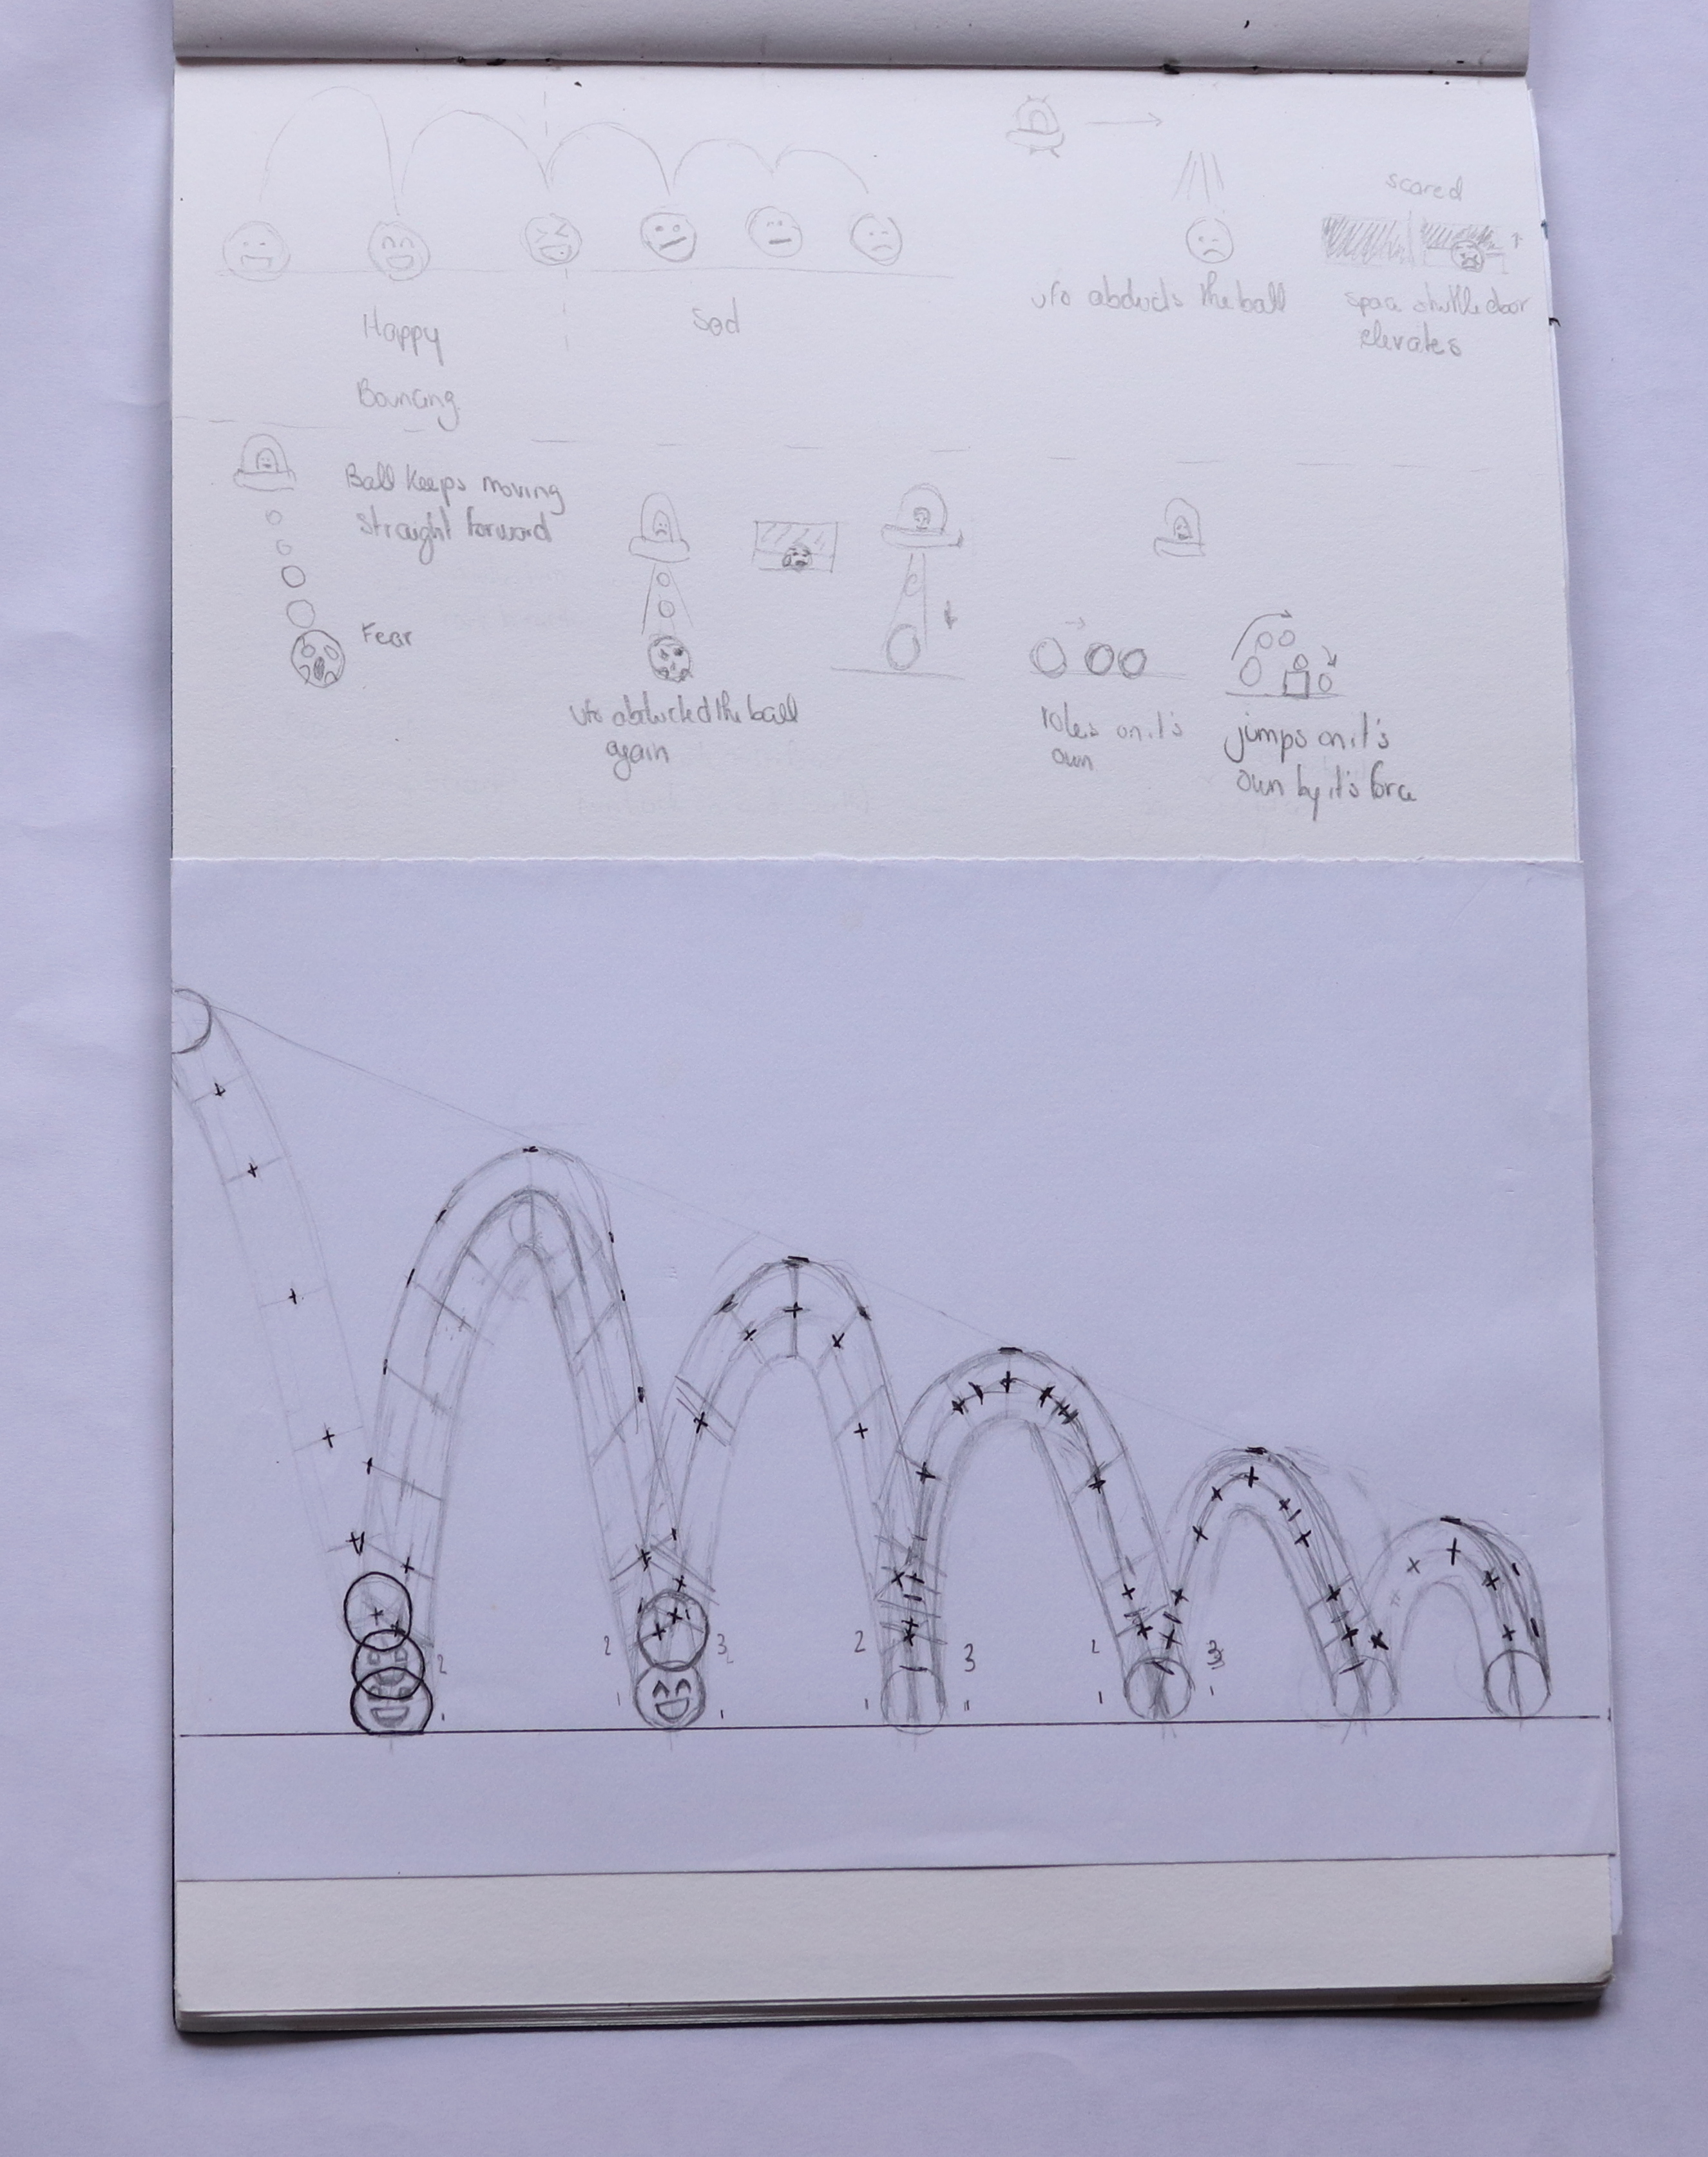 scared
Happy
Sad
Bouncing
ufo abducts the ball
space shuttle door
elevates
Ball keeps moving
straight forward
Fear
ufo abducted the ball
again
roles on it's
own
jumps on it's
own by it's force
2
1
2
3
1
1
2
3
1
11
2
3
1
1